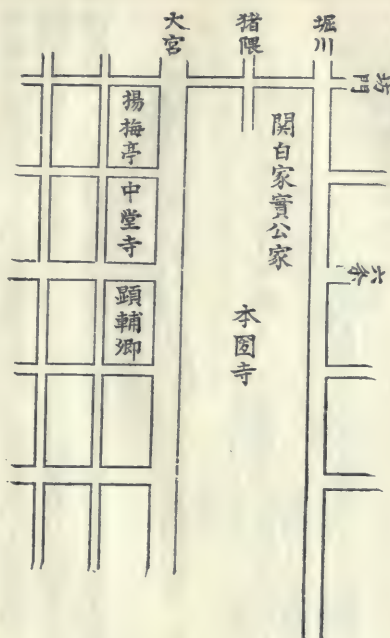 堀川
猪隈
大宮
坊門
六条
関白家實公家
本圀寺
揚梅亭
中堂寺
顕輔卿